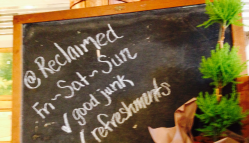 @Reclaimed
Fri~Sat~Sun
✓good junk
✓refreshments